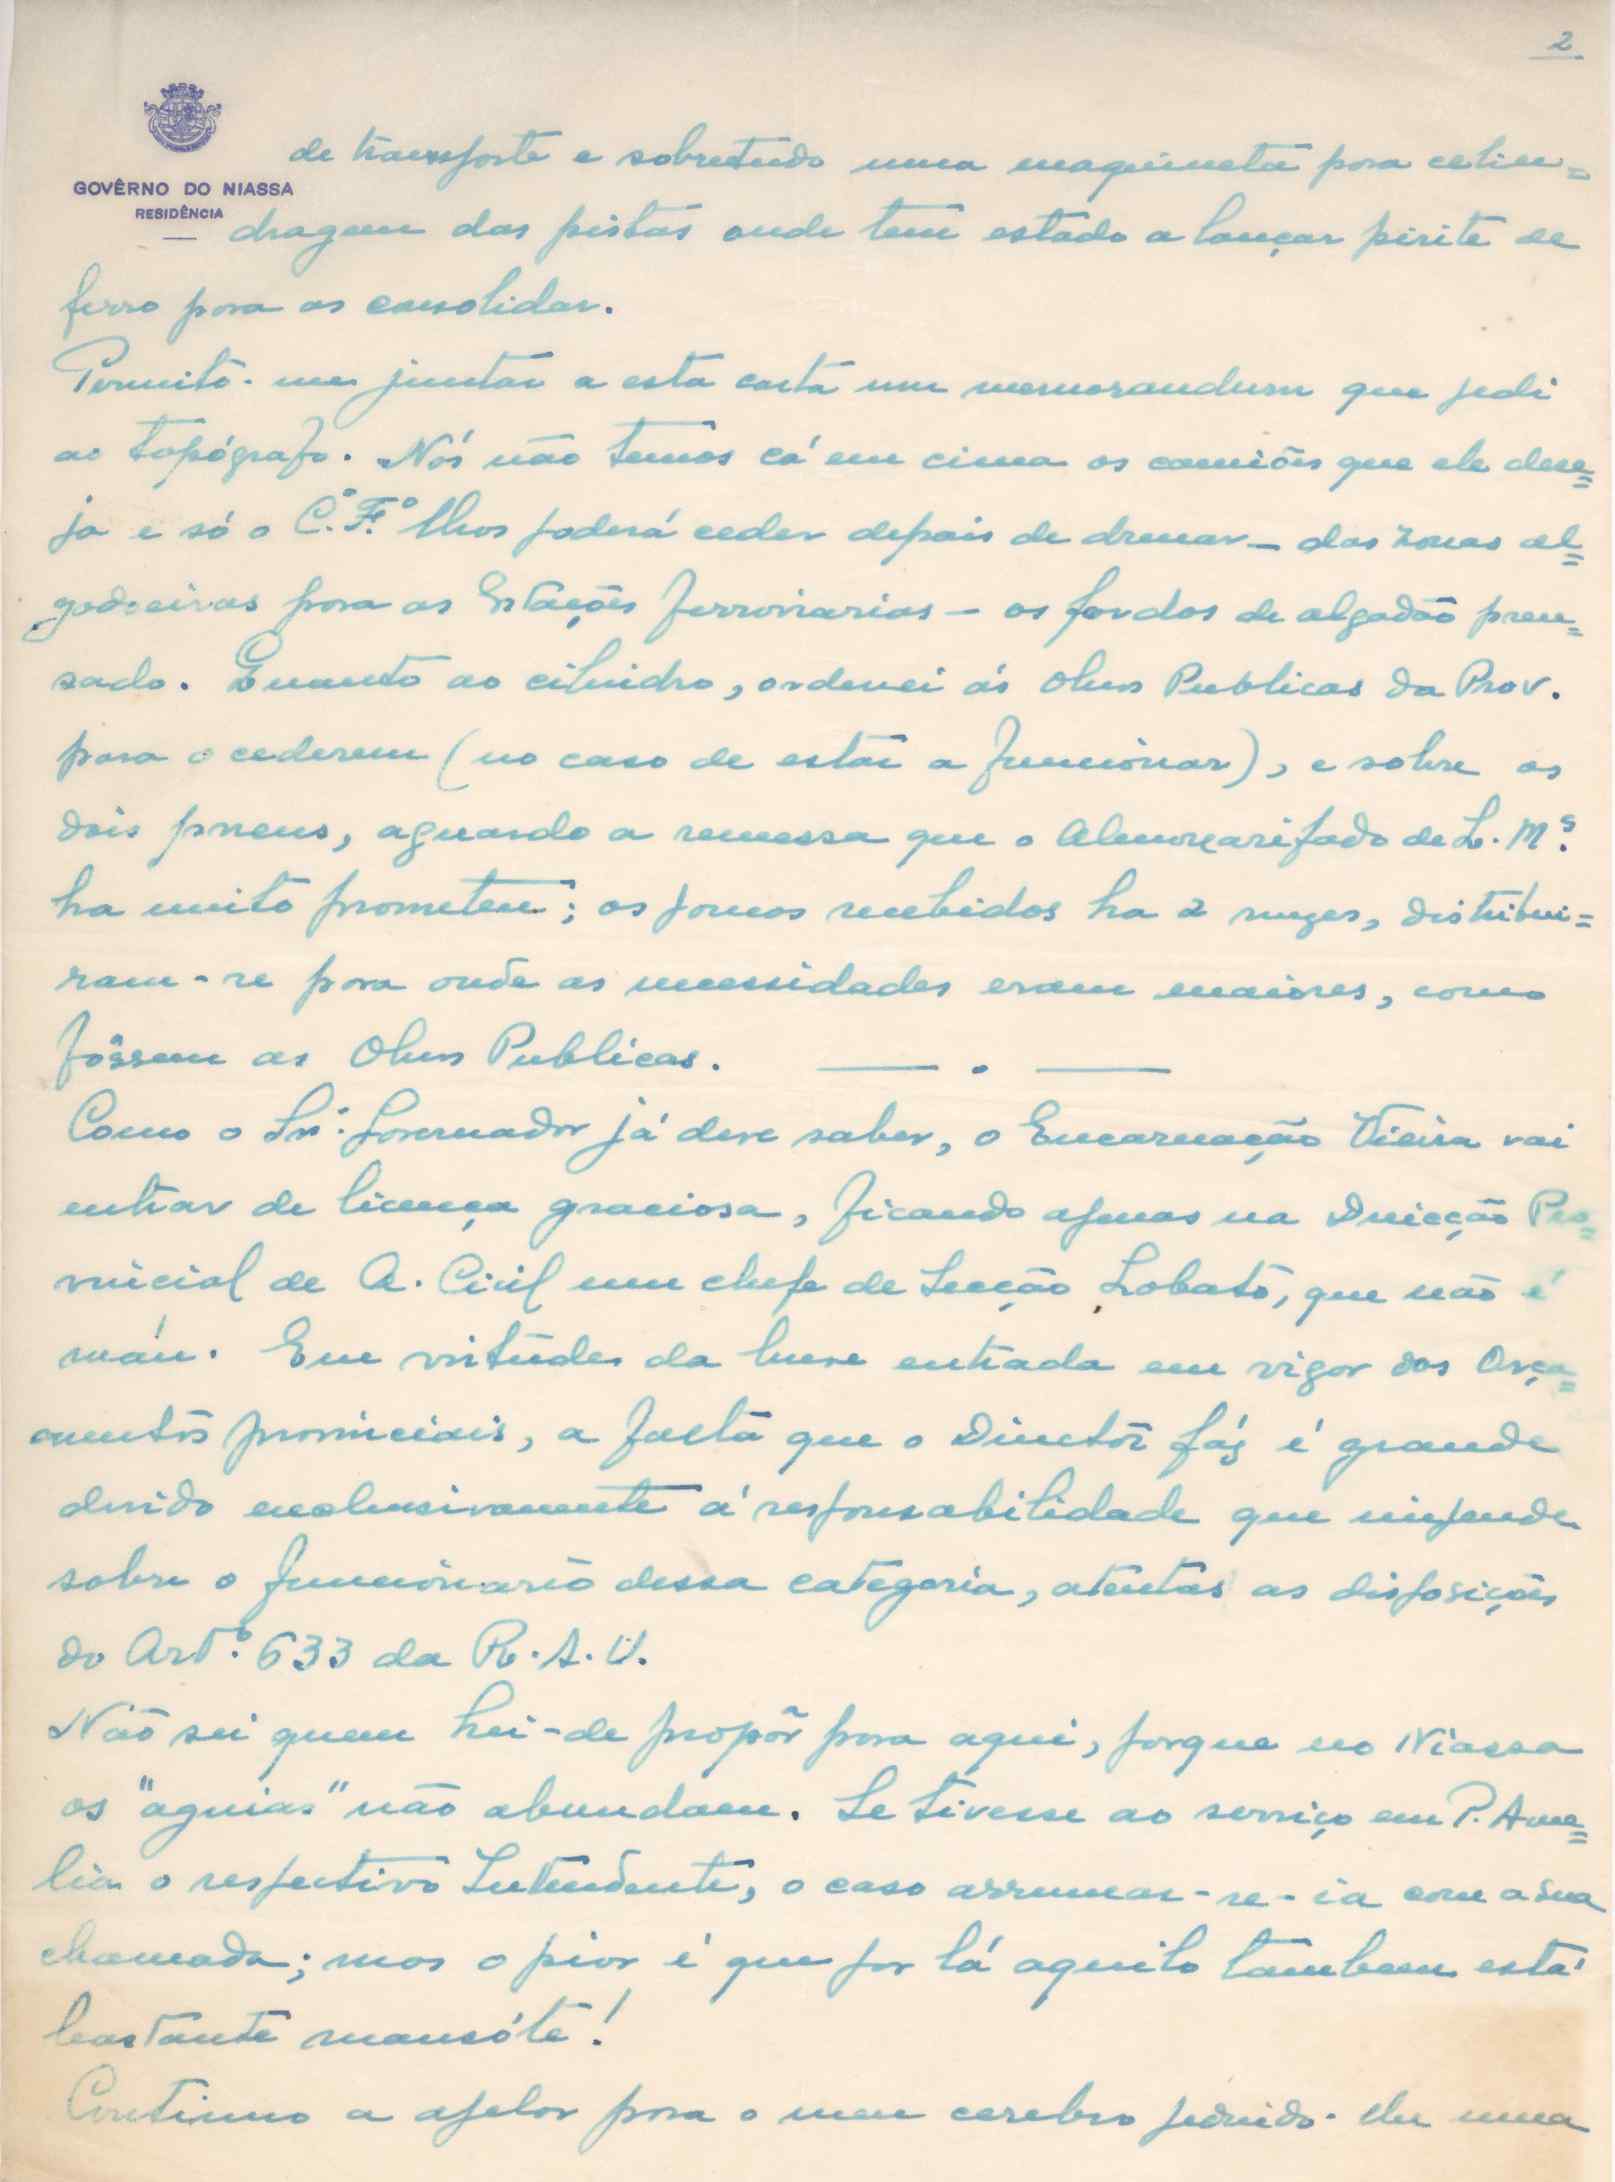 2
GOVÊRNO DO NIASSA
RESIDÊNCIA
de transporte e sobretudo uma maquineta para celin=
dragem das pistas onde tem estado a lançar pirite de
ferro para as consolidar.
Permito-me juntar a esta carta um memorandum que pedi
ao topógrafo. Nós não temos cá em cima os camiões que ele dese=
ja e só o C.º F.º lhos poderá ceder depois de drenar - das zonas al=
godoeiras para as Estações ferroviarias - os fardos de algodão pren=
sado. Quanto ao cilindro, ordenei ás Obras Publicas da Prov.
para o cederem (no caso de estar a funcionar), e sobre os
dois pneus, aguardo a remessa que o Almoxarifado de L. M.s
ha muito prometeu; os poucos recebidos ha 2 mezes, distribui=
ram-se para onde as necessidades eram maiores, como
fôssem as Obras Publicas. — . —
Como o Snr. Governador já deve saber, o Encarnação Vieira vai
entrar de licença graciosa, ficando apenas na Direcção Pro=
vincial de A. Civil um chefe de Secção, Lobato, que não é
máu. Em virtudes da breve entrada em vigor dos Orça=
mentos provinciais, a falta que o Director fáz é grande
devido exclusivamente á responsabilidade que impende
sobre o funcionario dessa categoria, atentas as disposições
do Artº. 633 da R.A.U.
Não sei quem hei-de propôr para aqui, porque no Niassa
os "aguias" não abundam. Se tivesse ao serviço em P. Ame=
lia o respectivo Intendente, o caso arrumar-se-ia com a sua
chamada; mas o pior é que por lá aquilo tambem está
bastante mansóte!
Continuo a apelar para o meu cerebro pedindo-lhe uma